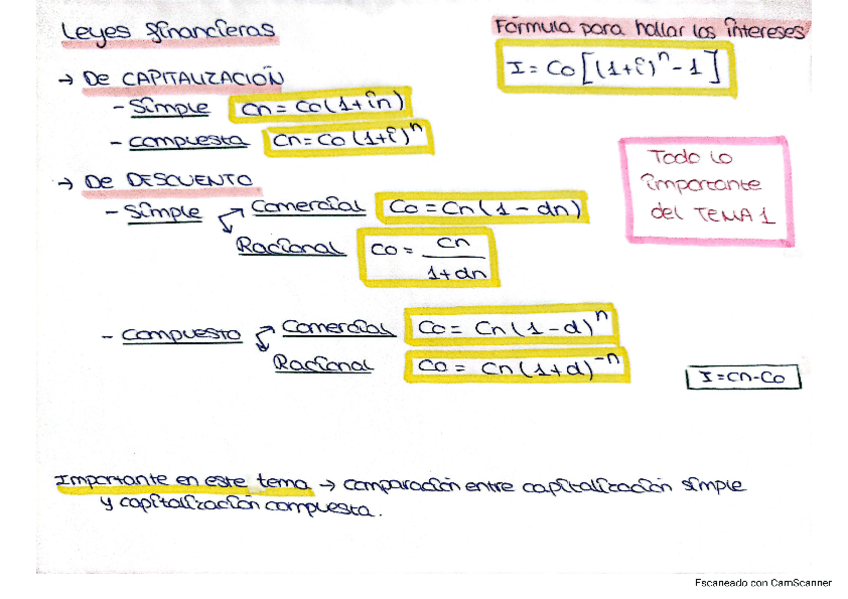 Leyes financieras
Fórmula para hallar los intereses
I = Co[(1+i)^n - 1]
→ De CAPITALIZACIÓN
- Simple Cn = Co(1+in)
- Compuesta Cn = Co(1+i)^n
Todo lo
importante
del TEMA 1
→ De DESCUENTO
- Simple Comercial Co = Cn(1 - dn)
Racional Co = Cn / 1+dn
- Compuesto Comercial Co = Cn(1-d)^n
Racional Co = Cn(1+d)^-n
I = Cn - Co
Importante en este tema → comparación entre capitalización simple
y capitalización compuesta.
Escaneado con CamScanner